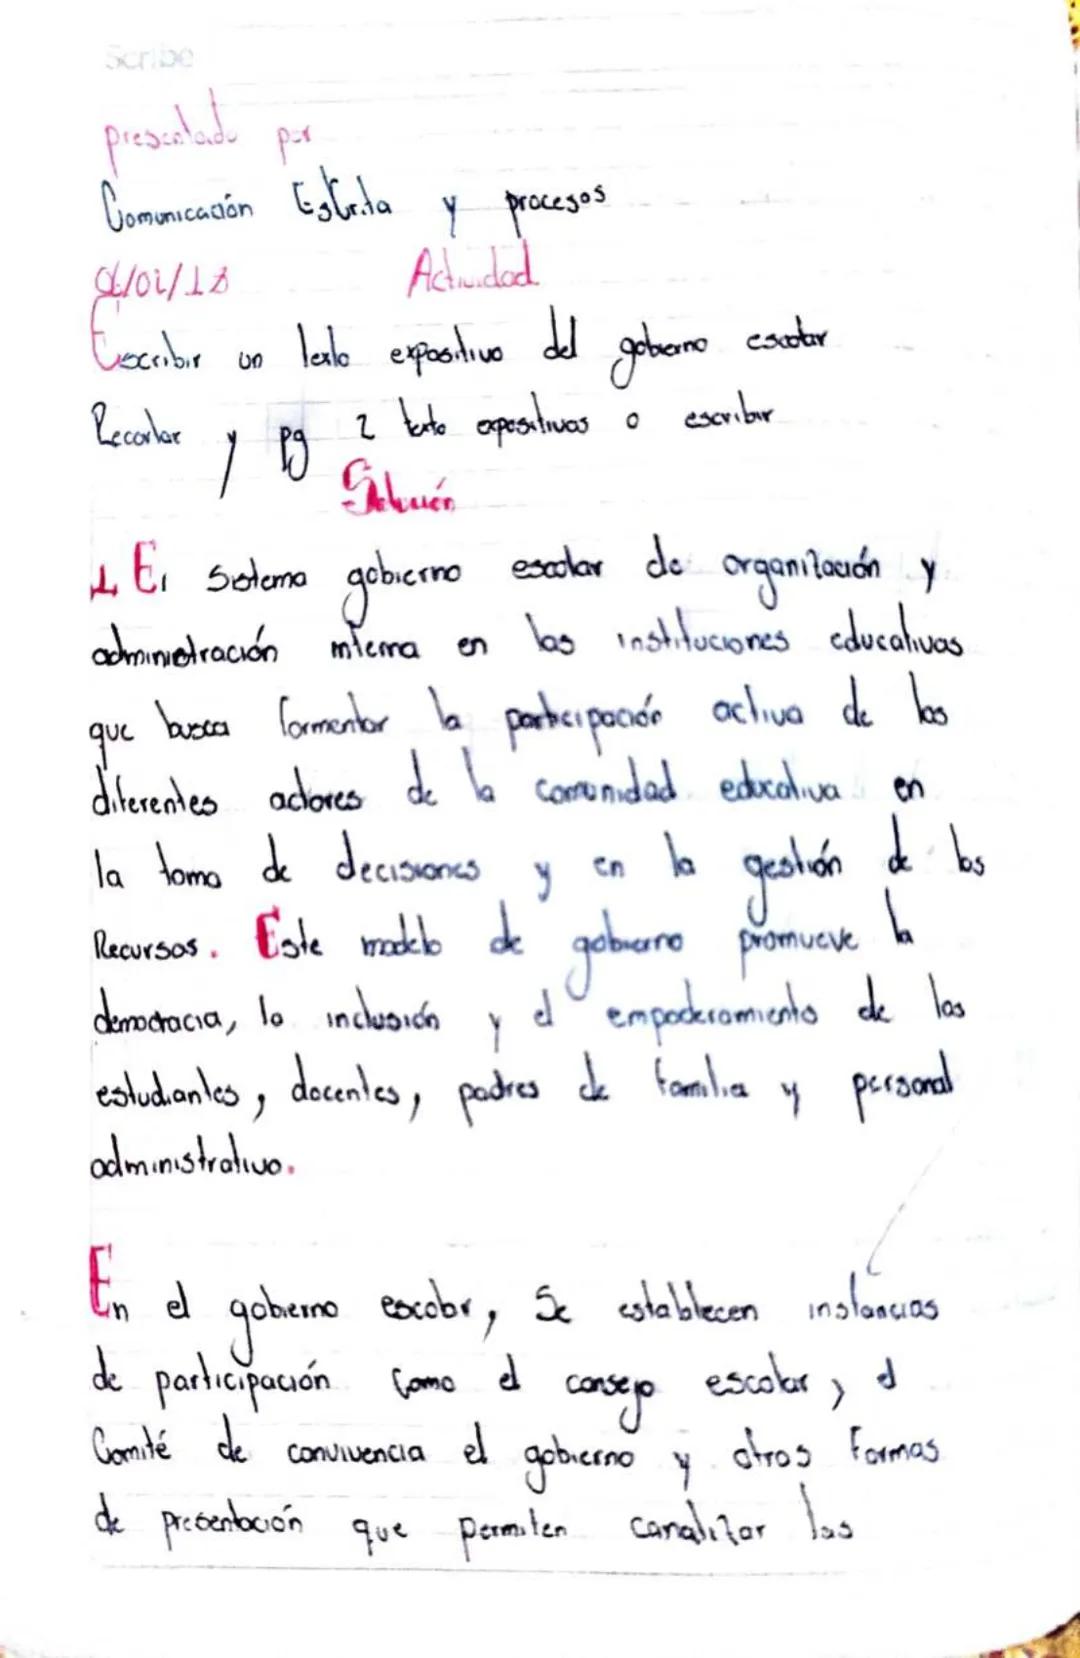 Scribe
presentado por
Comunicación Escrita y procesos
Actividad
Escribir un texto expositivo del gobierno escolar
Recortar y pg 2 texto expositivos o escribir
Solución
1. El sistema gobierno escolar de organización y
administración interna en las instituciones educativas
que busca formentar la participación activa de los
diferentes actores de la comunidad educativa en
la toma de decisiones y en la gestión de los
Recursos. Este modelo de gobierno promueve la
democracia, la inclusión y el empoderamiento de los
estudiantes, docentes, padres de familia y personal
administrativo.
En el gobierno escolar, Se establecen instancias
de participación como el consejo escolar, el
Comité de convivencia el gobierno y otros Formas
de presentación que permiten canalizar las